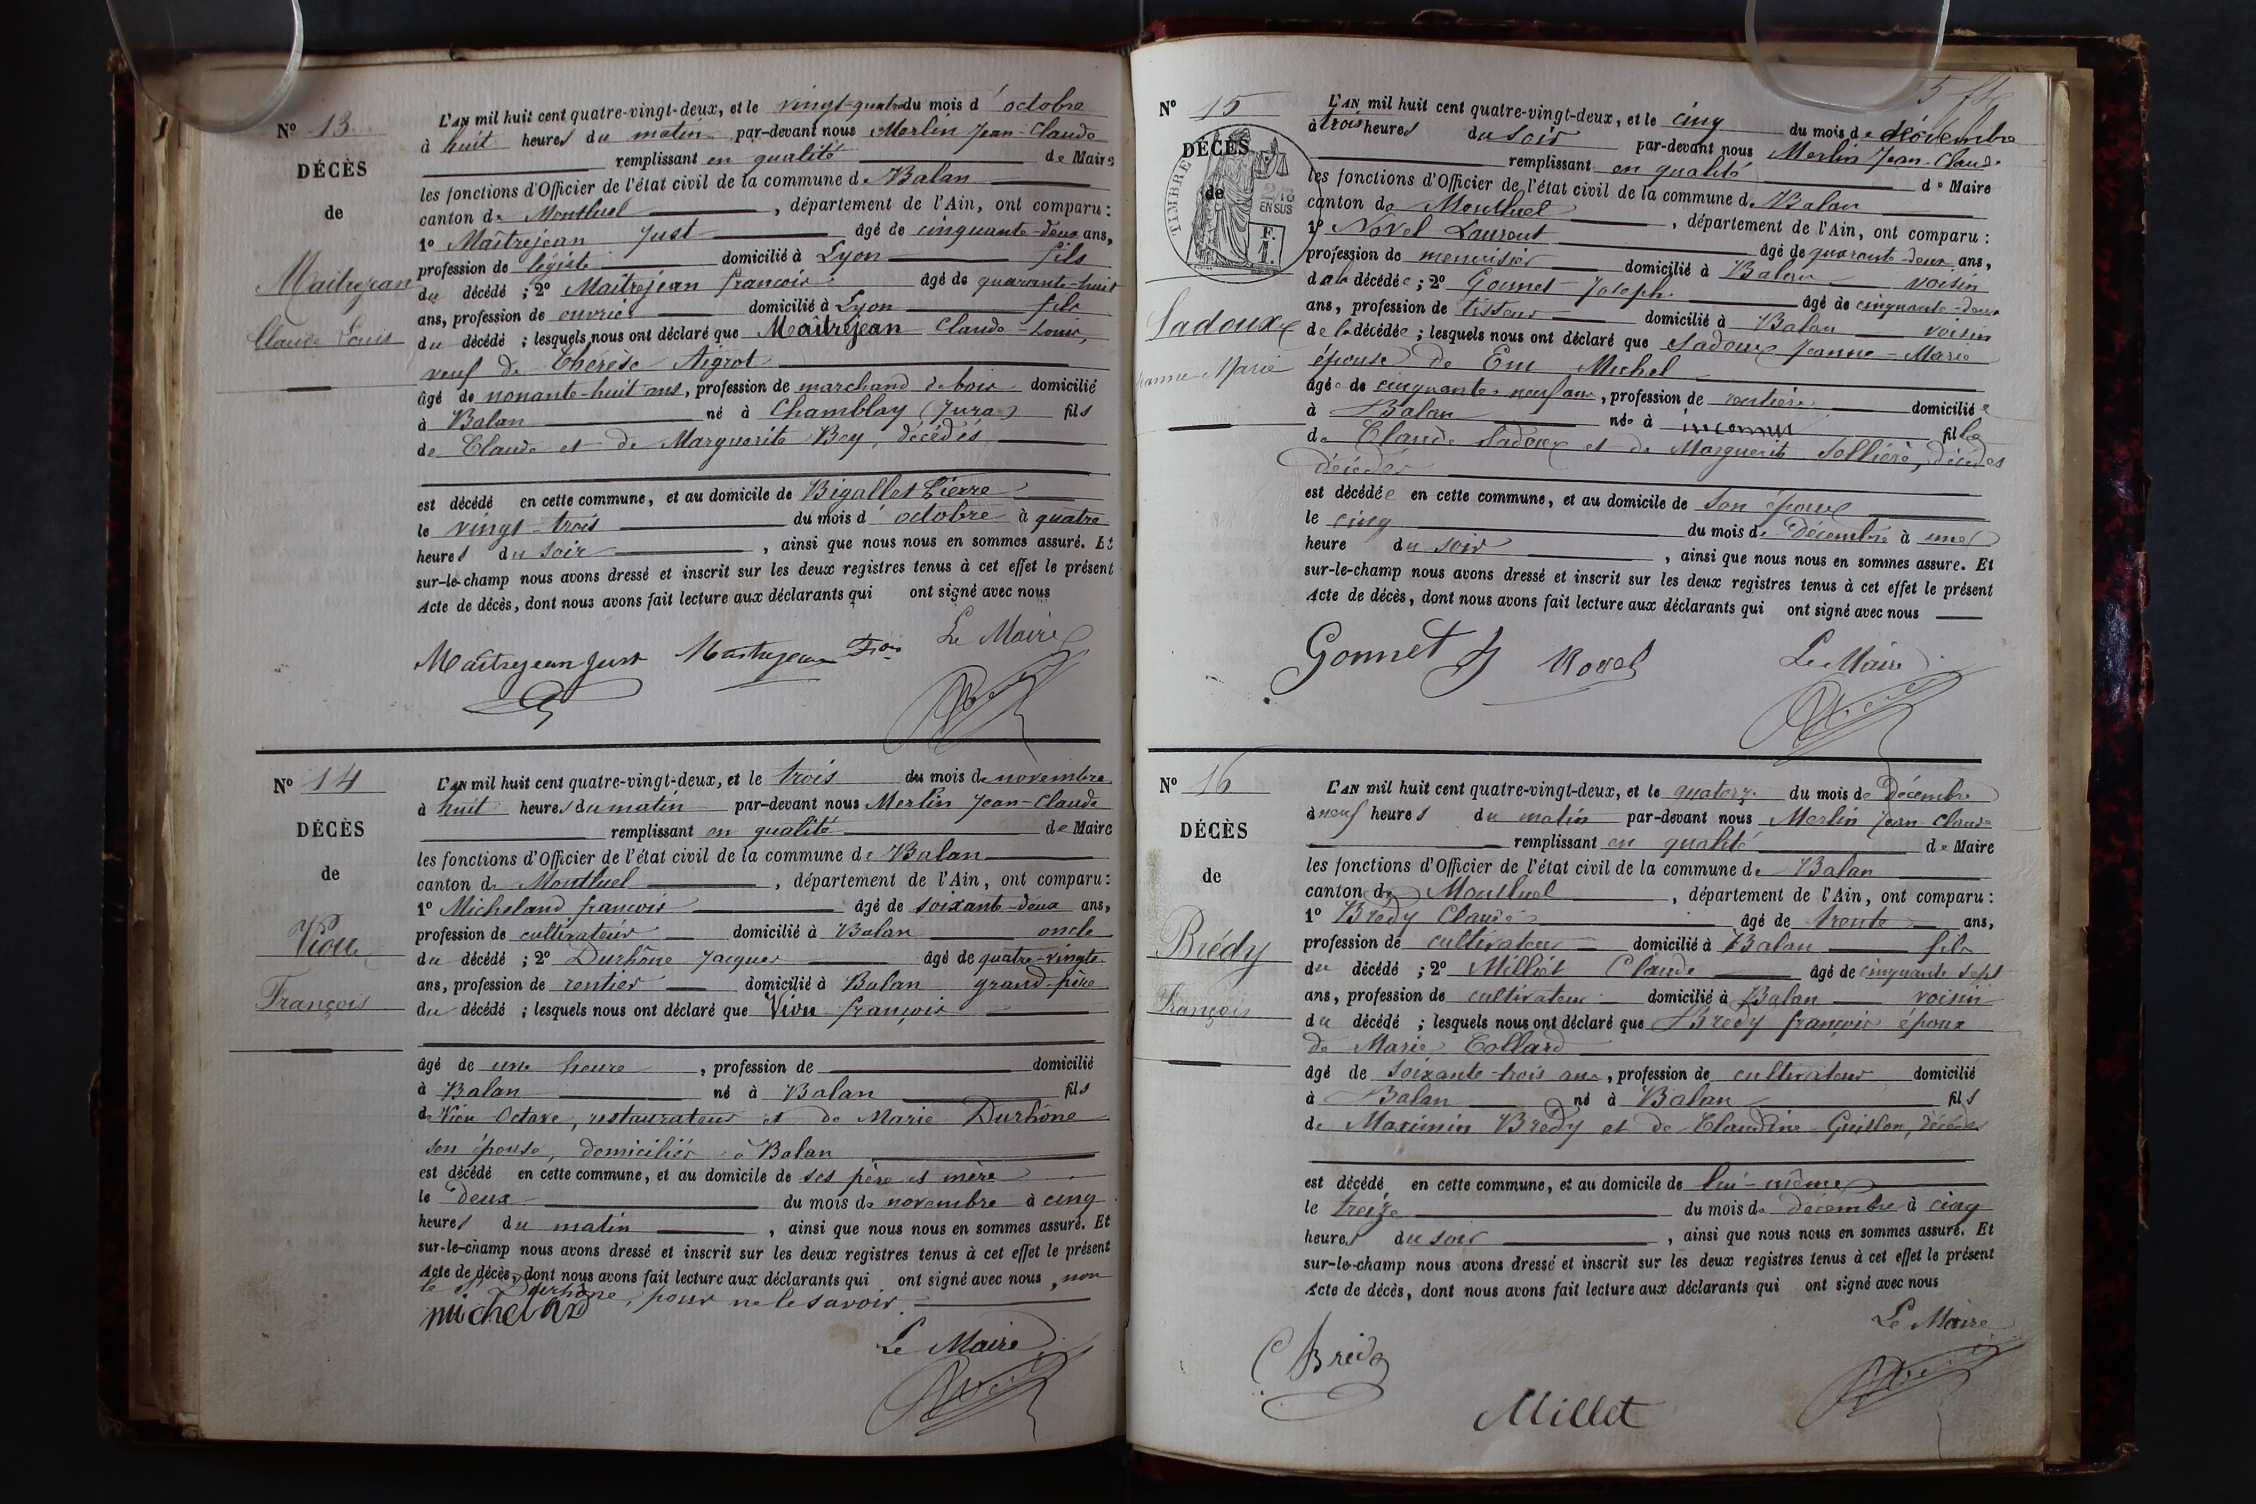 N° 13
DÉCÈS
de
Maitrejean
Claude Louis
L'AN mil huit cent quatre-vingt-deux, et le vingt-quatre du mois d'octobre
à huit heures du matin par-devant nous Merlin Jean-Claude
remplissant en qualité de Maire
les fonctions d'Officier de l'état civil de la commune de Balan
canton de Montluel, département de l'Ain, ont comparu :
1° Maîtrejean Just âgé de cinquante-deux ans,
profession de légiste domicilié à Lyon fils
du décédé ; 2° Maîtrejean françois âgé de quarante-huit
ans, profession de ouvrier domicilié à Lyon fils
du décédé ; lesquels nous ont déclaré que Maîtrejean Claude-Louis,
veuf de Thérèse Aigrot
âgé de nonante-huit ans, profession de marchand de bois domicilié
à Balan né à Chamblay (Jura) fils
de Claude et de Marguerite Bey, décédés
est décédé en cette commune, et au domicile de Bigallet Pierre
le vingt-trois du mois d'octobre à quatre
heures du soir, ainsi que nous nous en sommes assuré. Et
sur-le-champ nous avons dressé et inscrit sur les deux registres tenus à cet effet le présent
Acte de décès, dont nous avons fait lecture aux déclarants qui ont signé avec nous
Le Maire
Maitrejean Just Maitrejean Fois
N° 14
DÉCÈS
de
Viou
François
L'AN mil huit cent quatre-vingt-deux, et le trois du mois de novembre
à huit heures du matin par-devant nous Merlin Jean-Claude
remplissant en qualité de Maire
les fonctions d'Officier de l'état civil de la commune de Balan
canton de Montluel, département de l'Ain, ont comparu :
1° Micheland françois âgé de soixante-deux ans,
profession de cultivateur domicilié à Balan oncle
du décédé ; 2° Durhône Jacques âgé de quatre-vingts
ans, profession de rentier domicilié à Balan grand-père
du décédé ; lesquels nous ont déclaré que Viou françois
âgé de une heure, profession de domicilié
à Balan né à Balan fils
de Viou Octave, restaurateur et de Marie Durhône
son épouse, domiciliés à Balan
est décédé en cette commune, et au domicile de ses père et mère
le deux du mois de novembre à cinq
heures du matin, ainsi que nous nous en sommes assuré. Et
sur-le-champ nous avons dressé et inscrit sur les deux registres tenus à cet effet le présent
Acte de décès, dont nous avons fait lecture aux déclarants qui ont signé avec nous, non
le Sr Durhône, pour ne le savoir.
michelard
Le Maire
N° 15
DÉCÈS
de
TIMBRE
2/10
EN SUS
Sadoux
Jeanne-Marie
L'AN mil huit cent quatre-vingt-deux, et le cinq du mois de décembre
à trois heures du soir par-devant nous Merlin Jean-Claude
remplissant en qualité de Maire
les fonctions d'Officier de l'état civil de la commune de Balan
canton de Montluel, département de l'Ain, ont comparu :
1° Novel Laurent âgé de quarante-deux ans,
profession de menuisier domicilié à Balan voisin
de la décédée ; 2° Gonnet Joseph âgé de cinquante-deux
ans, profession de tisseur domicilié à Balan voisin
de la décédée ; lesquels nous ont déclaré que Sadoux Jeanne-Marie
épouse de Eme Michel
âgée de cinquante-neuf ans, profession de rentière domiciliée
à Balan née à inconnu fille
de Claude Sadoux et de Marguerite Sellière, décédés
décédés
est décédée en cette commune, et au domicile de son époux
le cinq du mois de Décembre à une
heure du soir, ainsi que nous nous en sommes assuré. Et
sur-le-champ nous avons dressé et inscrit sur les deux registres tenus à cet effet le présent
Acte de décès, dont nous avons fait lecture aux déclarants qui ont signé avec nous
Gonnet J Novel Le Maire
N° 16
DÉCÈS
de
Brédy
François
L'AN mil huit cent quatre-vingt-deux, et le quatorze du mois de Décembre
à neuf heures du matin par-devant nous Merlin Jean-Claude
remplissant en qualité de Maire
les fonctions d'Officier de l'état civil de la commune de Balan
canton de Montluel, département de l'Ain, ont comparu :
1° Brédy Claude âgé de trente ans,
profession de cultivateur domicilié à Balan fils
du décédé ; 2° Milliet Claude âgé de cinquante sept
ans, profession de cultivateur domicilié à Balan voisin
du décédé ; lesquels nous ont déclaré que Brédy françois époux
de Marie Collard
âgé de soixante-trois ans, profession de cultivateur domicilié
à Balan né à Balan fils
de Maximin Brédy et de Claudine Guillon, décédés
est décédé en cette commune, et au domicile de lui-même
le treize du mois de décembre à cinq
heures du soir, ainsi que nous nous en sommes assuré. Et
sur-le-champ nous avons dressé et inscrit sur les deux registres tenus à cet effet le présent
Acte de décès, dont nous avons fait lecture aux déclarants qui ont signé avec nous
Le Maire
C Bredy
Millet